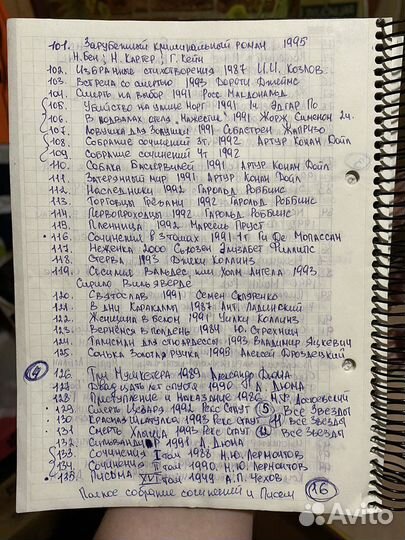 101. Зарубежный криминальный роман 1995
Н. Бен; Н. Картер; Г. Кейн
102. Избранные стихотворения 1987 И.И. Козлов
103. Встреча со смертью 1993 Дороти Джеймс
104. Смерть на выбор 1991 Росс Макдональд
105. Убийство на улице Морг 1991 1ч Эдгар По
106. В подвалах отеля "Мажестик" 1991 Жорж Сименон 2ч.
107. Ловушка для Золушки 1991 Себастьен Жапризо
108. Собрание сочинений 3т. 1992 Артур Конан Дойл
109. Собрание сочинений 4т 1992
110. Собака Баскервилей 1991 Артур Конан Дойл
111. Затерянный мир 1991 Артур Конан Дойл
112. Наследники 1992 Гарольд Роббинс
113. Торговцы грёзами 1992 Гарольд Роббинс
114. Первопроходцы 1992 Гарольд Роббинс
115. Пленница 1992 Марсель Пруст
116. Сочинения в 3 томах 1991 1т Ги Де Мопассан
117. Неженка 2000 Сьюзен Элизабет Филлипс
118. Стерва 1993 Джеки Коллинз
119. Сесилия Вальдес, или Холм Ангела 1993
Сирило Вильяверде
120. Святослав 1991 Семен Скляренко
121. В дни Каракаллы 1987 Ант. Ладинский
122. Женщина в белом 1991 Уилки Коллинз
123. Вернёмся в полдень 1984 Ю. Стрехнин
124. Талисман для стюардессы 1993 Владимир Яцкевич
125. Сонька Золотая ручка 1995 Алексей Дроздецкий
4
126. Две 1989 Александр Дюма
127. Двадцать лет спустя 1990 А. Дюма
128. Преступление и Наказание 1986 Достоевский
129. Смерть Цезаря 1992 Рекс Стаут 5 Все Звезды
130. Красная шкатулка 1993 Рекс Стаут 11 Все Звезды
131. Смерть Хлыща 1993 Рекс Стаут 11 Все Звезды
132. Сильвандир 1991 А. Дюма
133. Сочинения I том 1988 М.Ю. Лермонтов
134. Сочинения II том 1990. М.Ю. Лермонтов
135. Письма XVI том 1949 А.П. Чехов
Полное собрание сочинений и Писем
26
Avito